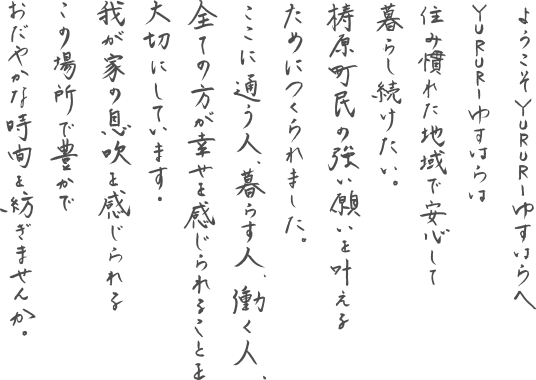 ようこそYURURIゆすはらへ
YURURIゆすはらは
住み慣れた地域で安心して
暮らし続けたい。
梼原町民の強い願いを叶える
ためにつくられました。
ここに通う人、暮らす人、働く人、
全ての方が幸せを感じられることを
大切にしています。
我が家の息吹を感じられる
この場所で豊かで
おだやかな時間を紡ぎませんか。